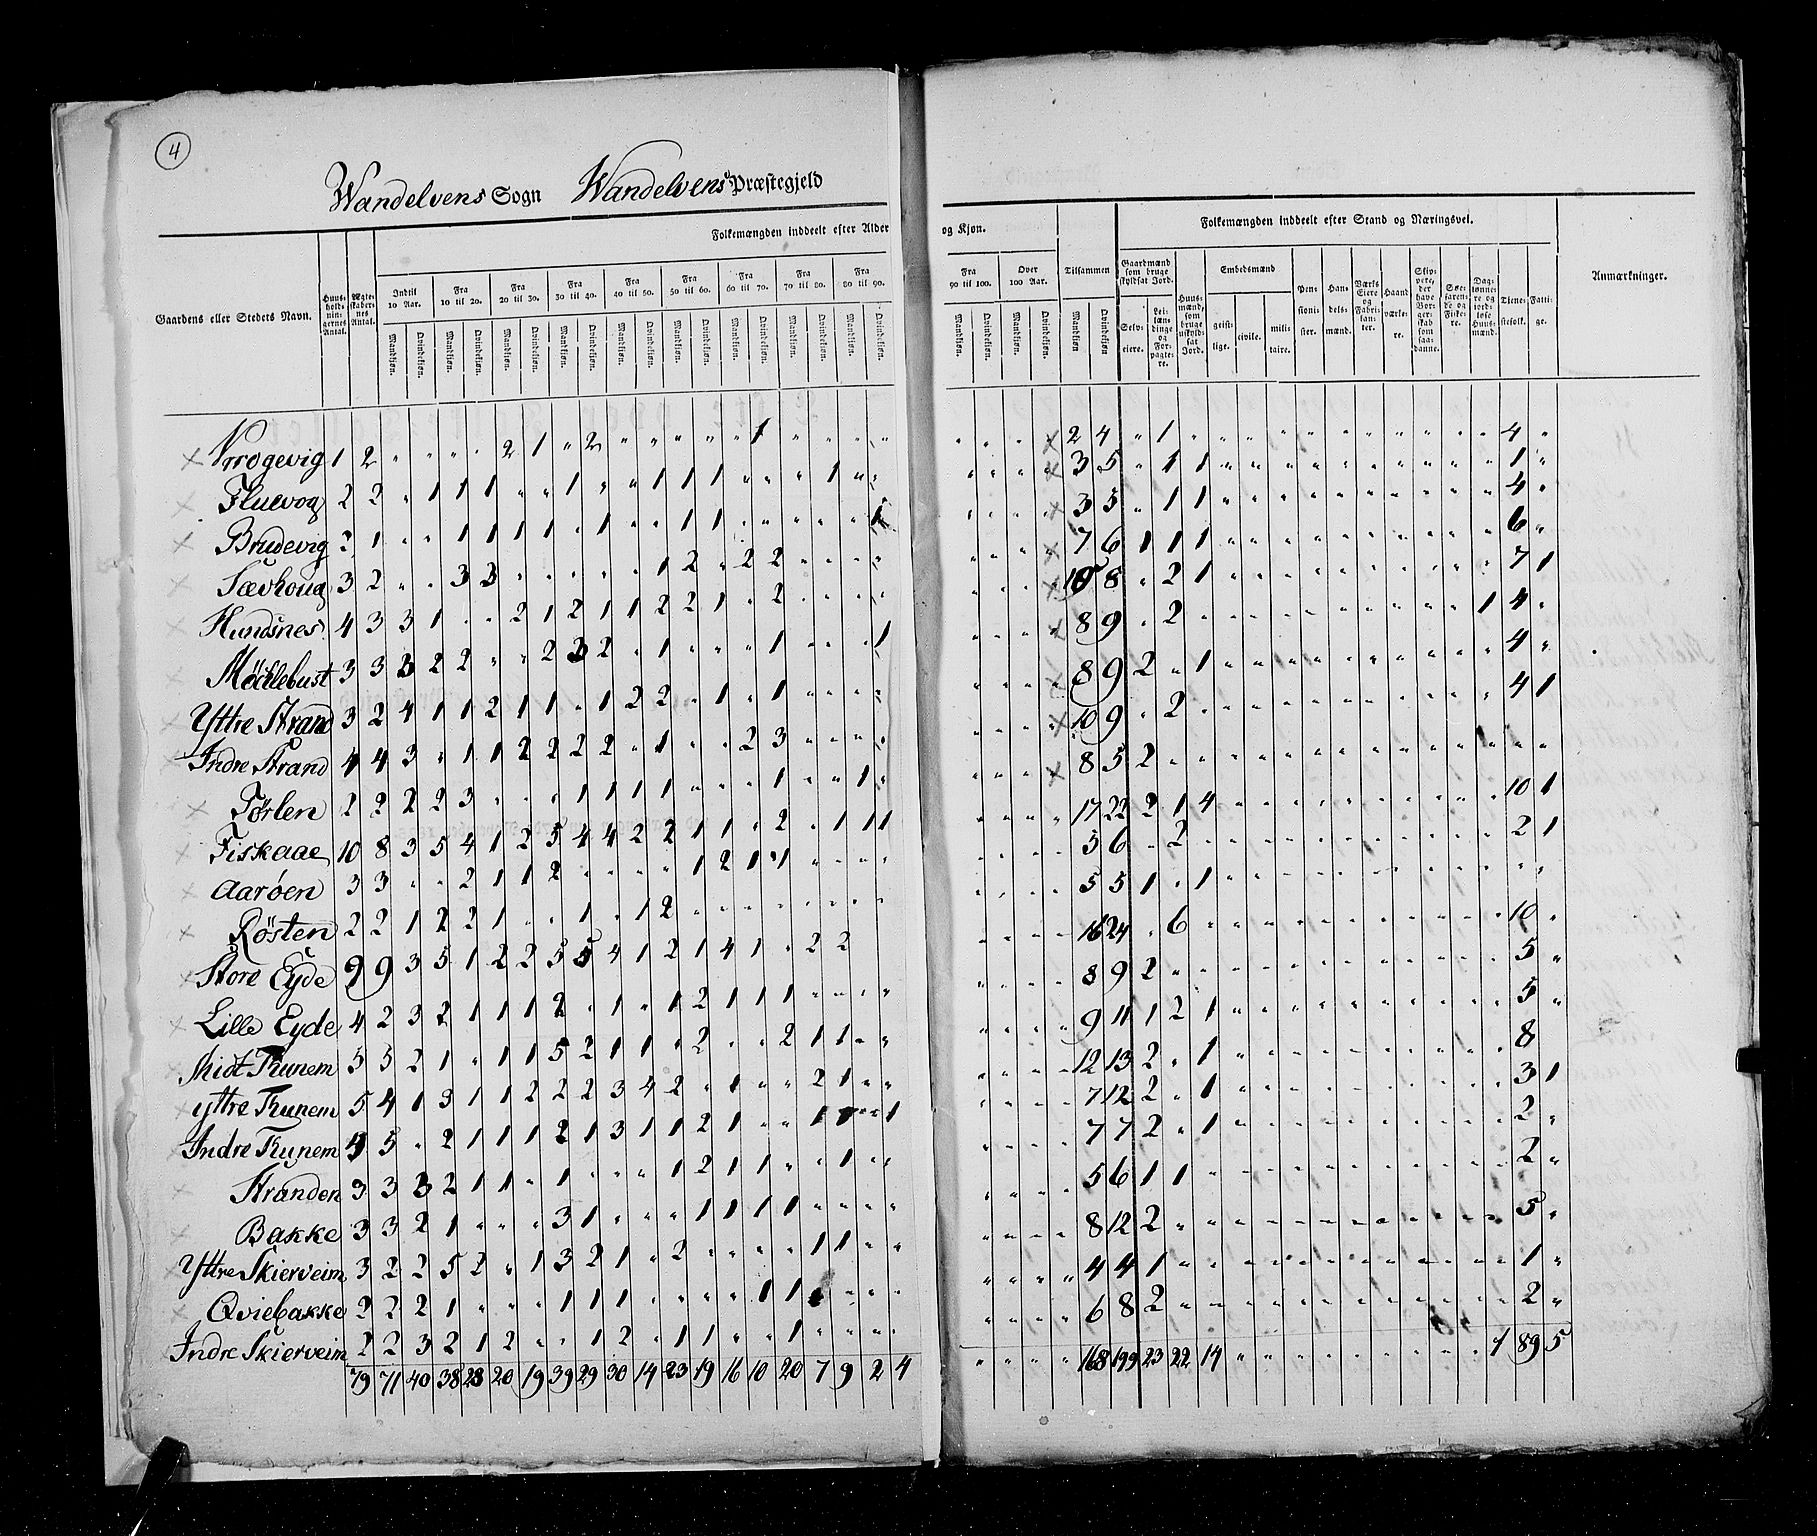 4
Wandelvens Sogn Wandelvens Præstegjeld
Folkemængden inddeelt efter Alder og Kjøn.
Folkemængden inddeelt efter Stand og Næringsvei.
Gaardens eller Stedets Navn.
Huusholdningernes Antal.
Ægteskabernes Antal.
Indtil 10 Aar.
Fra 10 til 20.
Fra 20 til 30.
Fra 30 til 40.
Fra 40 til 50.
Fra 50 til 60.
Fra 60 til 70.
Fra 70 til 80.
Fra 80 til 90.
Fra 90 til 100.
Over 100 Aar.
Tilsammen
Mandkjøn. Qvindekjøn. Mandkjøn. Qvindekjøn. Mandkjøn. Qvindekjøn. Mandkjøn. Qvindekjøn. Mandkjøn. Qvindekjøn. Mandkjøn. Qvindekjøn. Mandkjøn. Qvindekjøn. Mandkjøn. Qvindekjøn. Mandkjøn. Qvindekjøn. Mandkjøn. Qvindekjøn. Mandkjøn. Qvindekjøn. Mandkjøn Qvindekjøn.
Gaardmænd som bruge skyldsat Jord.
Selveiere.
Leilændinge og Forpagtere.
Huusmænd, som bruge uskyldsat Jord.
Embedsmænd
geistlige.
civile.
militaire.
Pensionister.
Handelsmænd.
Værks Eiere og Fabrikanter.
Haandværkere.
Skippere, der have Borgerskab som saadanne.
Søefarende og Fiskere.
Daglønnere og jordløse Huusmænd.
Tienestefolk.
Fattige.
Anmærkninger.
Vrrogevig 1 2 2 1 2 1 2 4 1 4
Fluevog 2 2 1 1 1 1 1 1 1 1 3 5 1 1 1
Brudevig 2 1 1 1 1 1 1 1 1 1 3 5 1 1 4
Sævhoug 3 2 3 3 1 2 2 2 7 6 1 1 1 6
Hundsnes 4 3 3 1 2 1 2 1 1 2 2 1 2 10 8 2 1 7 1
Møcklebust 3 3 3 2 2 2 3 2 1 1 1 8 9 2 1 4
Yttre Strand 3 2 4 1 1 2 1 1 1 2 2 1 1 8 9 2 1 4
Indre Strand 4 4 3 1 1 2 2 2 2 1 2 3 10 9 2 4 1
Tørlen 2 2 2 2 3 1 1 1 1 1 1 8 5 2
Fiskaae 10 8 3 5 4 1 2 5 4 4 2 2 1 1 2 1 1 1 17 22 2 1 4 10 1
Aarøen 3 3 2 1 1 2 1 2 1 1 5 6 2 2 1
Røsten 2 2 1 2 2 1 1 1 2 5 5 1 1
Store Eyde 9 9 3 5 1 2 2 5 5 4 1 2 1 4 1 2 2 16 24 6 10
Lille Eyde 4 2 3 2 1 1 1 2 1 1 2 1 1 1 8 9 2 5
Midt Thunem 5 5 2 1 1 1 5 2 1 1 2 2 1 1 9 11 1 2 1 5
yttre Thunem 5 4 1 3 1 1 2 2 2 3 4 2 1 2 1 12 13 2 1 8
Indre Thunem 4 5 2 1 1 1 2 1 3 1 1 2 1 1 1 1 7 12 2 1 3 1
Stranden 3 3 3 2 1 1 1 1 2 1 1 1 7 7 2 1 2
Bakke 3 3 2 1 3 1 1 1 1 1 5 6 1 1 2
Yttre Skierveim 3 2 2 5 2 1 3 2 1 2 1 1 8 12 2 5
Qviebakke 2 2 2 1 1 1 1 1 1 4 4 1 1
Indre Skierveim 2 2 3 2 1 2 1 2 1 1 1 6 8 2 2
79 71 40 38 28 20 19 39 29 30 14 23 19 16 10 20 7 9 2 4 168 199 23 22 14 1 89 5